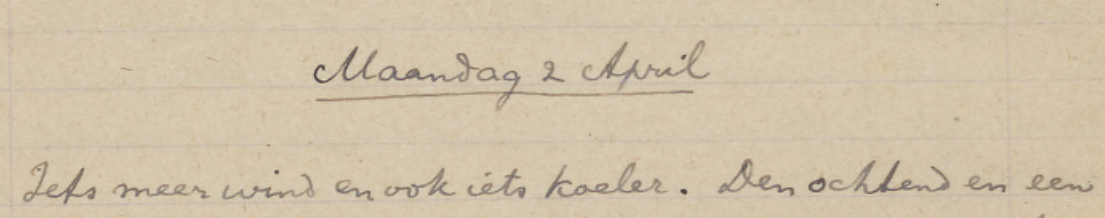 Maandag 2 April
Iets meer wind en ook iets koeler. Den ochtend en een